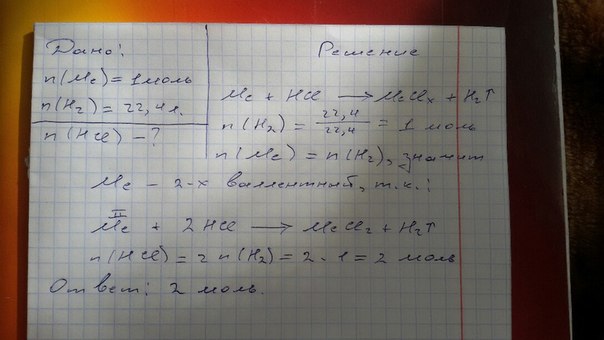 Дано:
n(Me) = 1 моль
n(H₂) = 22,4 л.
n(HCl) - ?
Решение
Me + HCl → MeClₓ + H₂↑
n(H₂) = 22,4 / 22,4 = 1 моль
n(Me) = n(H₂), значит
Me - 2-х валлентный, т.к.:
II
Me + 2HCl → MeCl₂ + H₂↑
n(HCl) = 2 n(H₂) = 2 · 1 = 2 моль
Ответ: 2 моль.